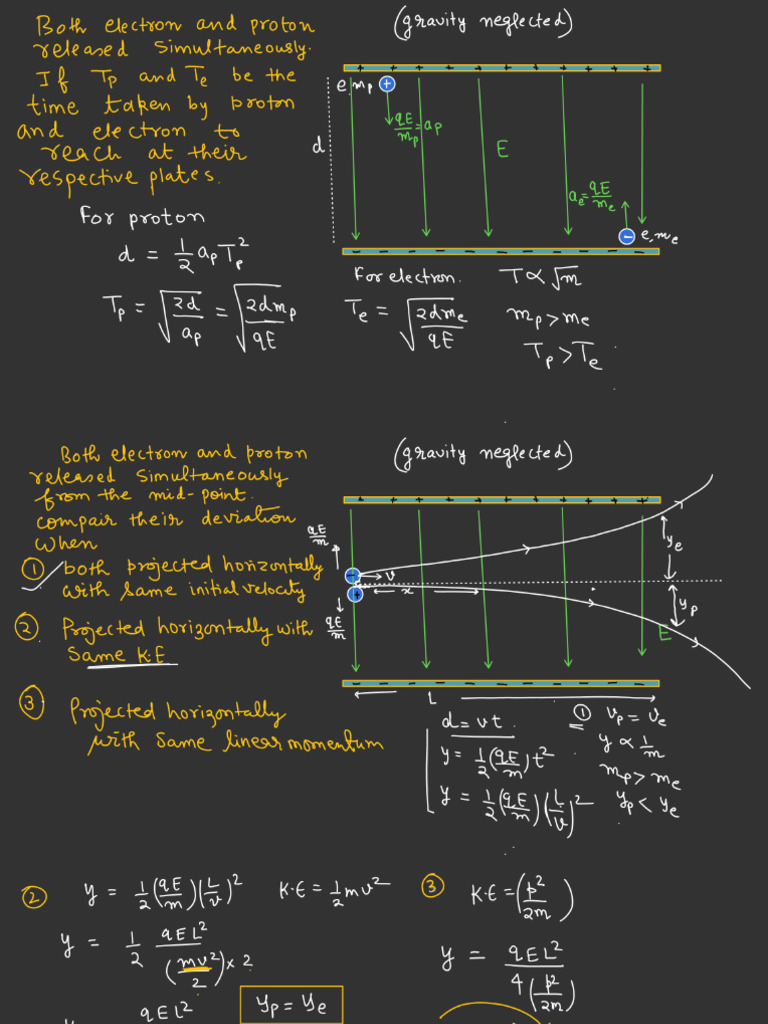 Both electron and proton
released simultaneously.
If Tp and Te be the
time taken by proton
and electron to
reach at their
respective plates.
(gravity neglected)
+ + + + + + + + +
e, mp +
qE/mp = ap
d
E
ae = qE/me
- e, me
- - - - - - - - -
For proton
d = 1/2 ap Tp²
Tp = √(2d/ap) = √(2dmp/qE)
For electron.
Te = √(2dme/qE)
T ∝ √m
mp > me
Tp > Te
Both electron and proton
released simultaneously
from the mid-point.
compair their deviation
when
① both projected horizontally
with same initial velocity
② Projected horizontally with
same K.E
③ Projected horizontally
with same linear momentum
(gravity neglected)
+ + + + + + + + +
qE/m
v
x
ye
+
qE/m
yp
E
- - - - - - - - -
L
d = vt
y = 1/2 (qE/m) t²
y = 1/2 (qE/m) (L/v)²
① vp = ve
y ∝ 1/m
mp > me
yp < ye
② y = 1/2 (qE/m) (L/v)² K.E = 1/2 mv²
y = 1/2 qEL²/((mv²/2) × 2)
qEL²
yp = ye
③ K.E = (p²/2m)
y = qEL²/(4(p²/2m))